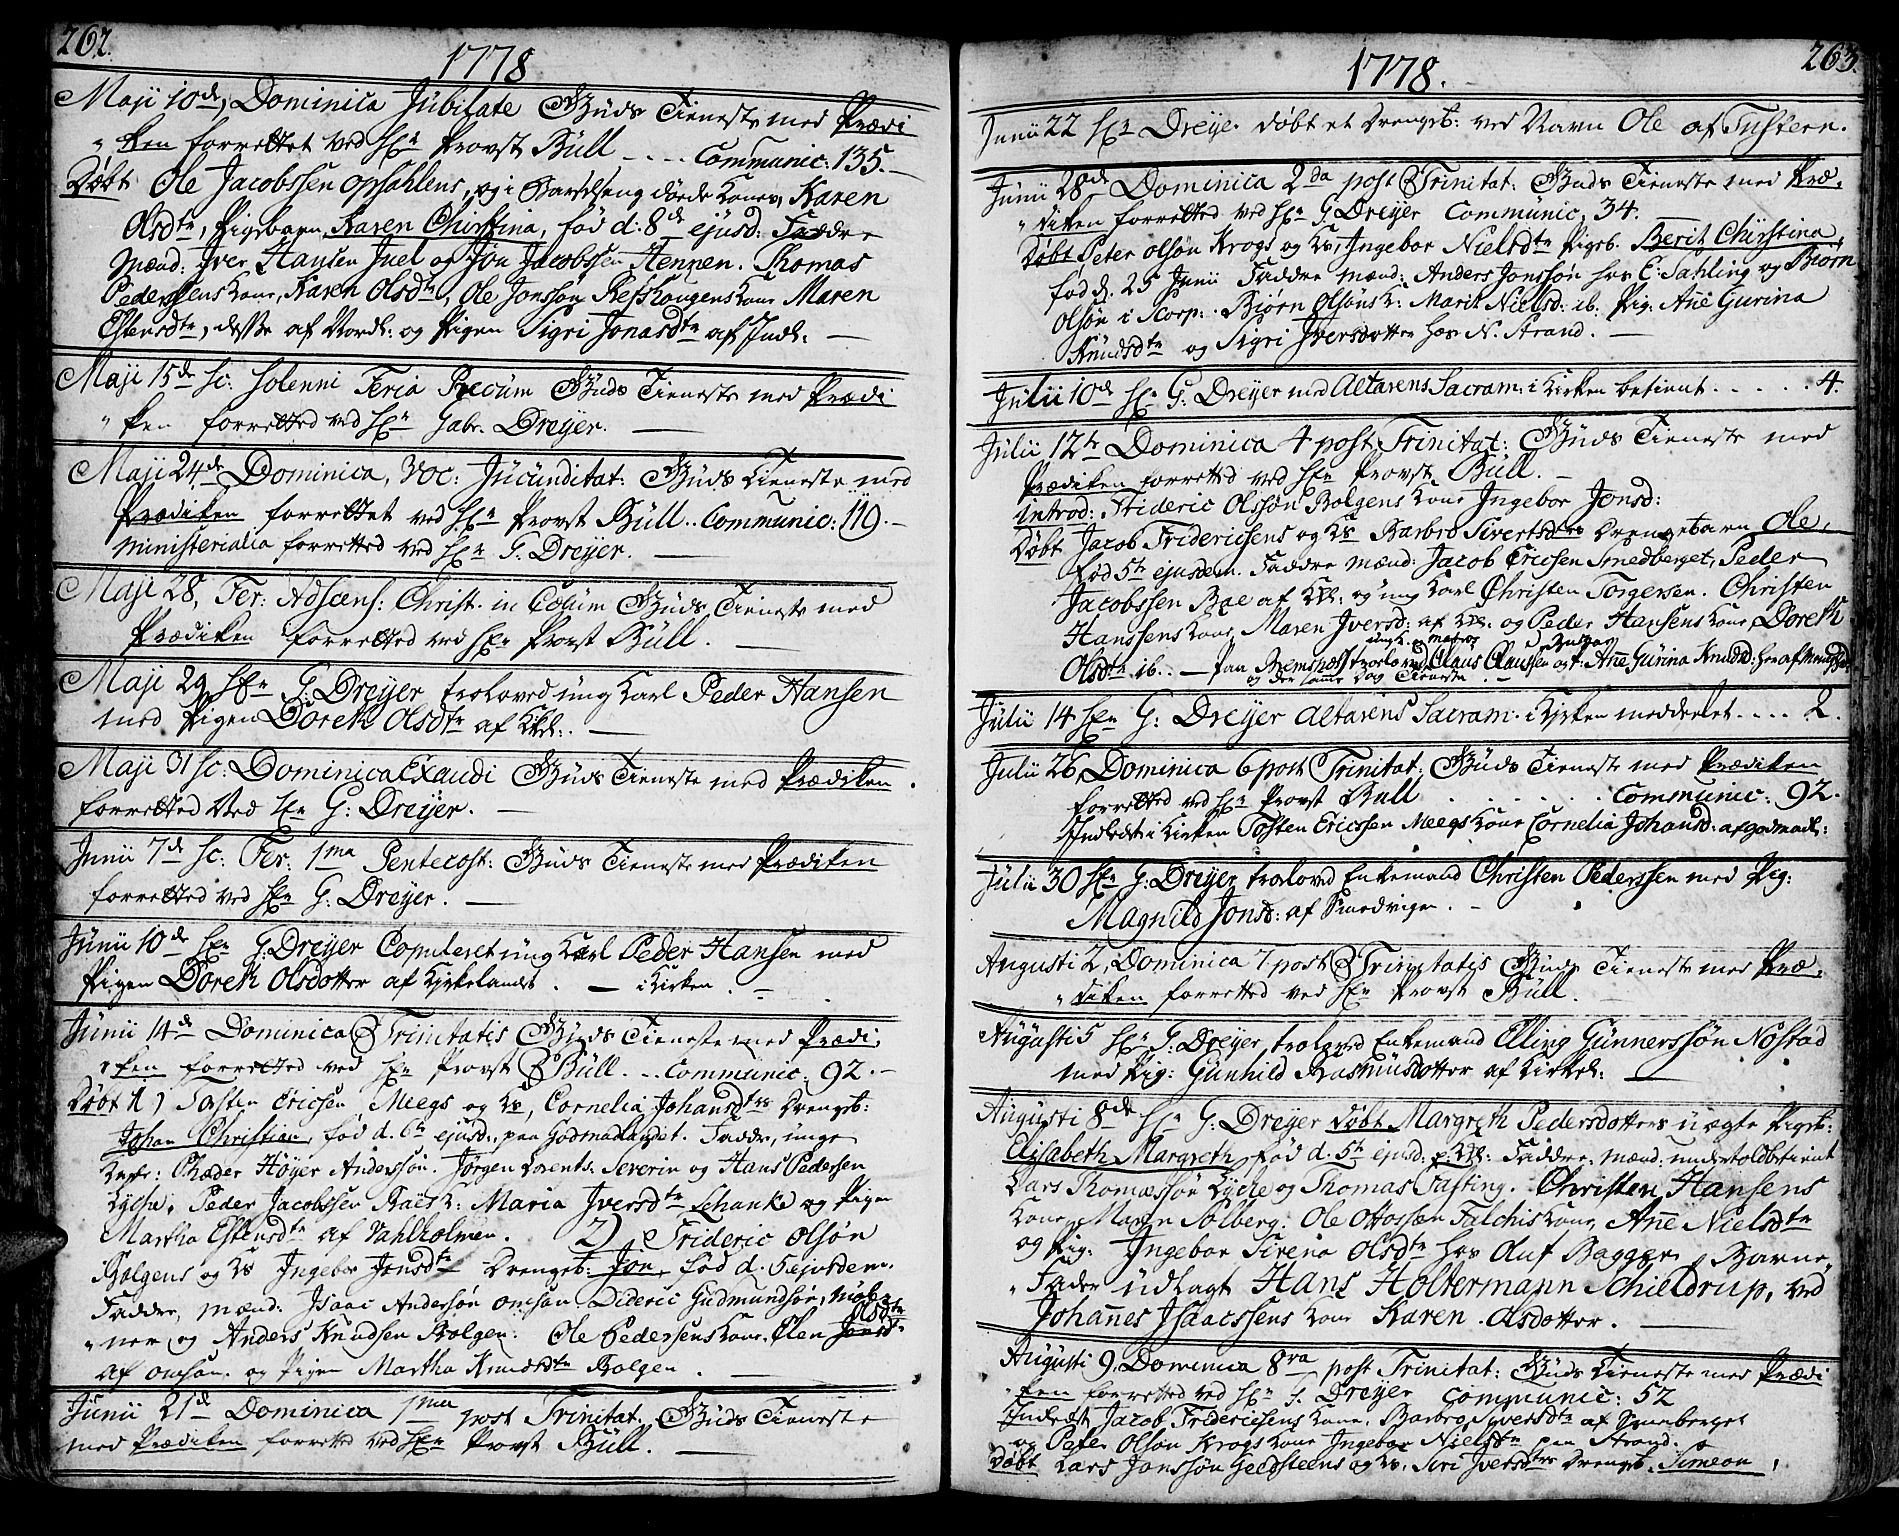 262.
1778
Maji 10de, Dominica Jubilate Guds Tieneste med Prædi
"ken forrettet ved Hr. Provst Büll .... Communic: 135.
Døbt Ole Jacobssen Opsahlens, og i Barselseng døde Kones, Karen
Olsdtr, Pigebarn, Karen Christina, fød d. 8de ejusd: Faddre
Mænd: Iver Hansen Juel og Jon Jacobssen Hennen. Thomas
Pederssens Kone, Karen Olsdtr, Ole Jonssøn Refshougens Kone Maren
Estensdtr, desse af Nordl: og Pigen Sigri Jonasdtr af Indl:
Maji 15de sc: Solenni Feria Precum Guds Tieneste med Prædi
"ken forretted ved Hr. Gabr. Dreyer.
Maji 24de Dominica, Voc: Jucunditat: Guds Tieneste med
Prædiken forrettet ved Hr. Provst Büll .. Communic: 119.
Ministerialia forretted ved Hr. G. Dreyer.
Maji 28, Fer: Adscens: Christ. in Coelum Guds Tieneste med
Prædiken forretted ved Hr. Provst Büll.
Maji 29 Hr. G: Dreyer troloved ung Karl Peder Hansen
med Pigen Doreth Olsdtr af Kkl:.
Maji 31 sc: Dominica Exaudi Guds Tieneste med Prædiken.
forretted ved Hr. G: Dreyer.
Junii 7de sc: Fer: 1ma Pentecost: Guds Tieneste med Prædiken
forretted ved Hr. G: Dreyer.
Junii 10de Hr. G: Dreyer Copuleret ung Karl Peder Hansen med
Pigen Doreth Olsdotter af Kirkelandet. — i Kirken.
Junii 14de Dominica Trinitatis Guds Tieneste med Prædi
"ken forretted ved Hr. Provst Büll. .. Communic: 92.
Døbt 1) Tosten Ericsen Meegs og Ks, Cornelia Johansdtrs Drengeb:
Johan Christian, fød d. 6te ejusd: paa Godmalandet. Faddre, unge
Karle: Christen Høyer Anderssøn. Jørgen Lorents: Severin og Hans Pedersen
Lyche, Peder Jacobssen Raes K: Maria Iversdtr Schanke og Pigen
Martha Estensdtr af Dahleholmen. 2) Frideric Olsøn
Bolgens og Ks Ingebor Jonsdtr Drengeb: Jon, fød d. 5 ejusdem.
Faddre, mænd: Isaac Anderssøn Omsan Dideric Gudmundsøn,
"ner og Anders Knudsen Bolgen: Ole Pedersens Kone, Elen Jonsd Olsdtr
af Omsan. og Pigen Martha Knudsdtr Bolgen.
Junii 21de Dominica 1ma post Trinitat. Guds Tieneste
med Prædiken forretted ved Hr. Provst Büll.
263.
1778.
Junii 22 Hr. Dreyer døbt et Drengeb: ved Navn Ole af Tusteen.
Junii 28de Dominica 2da post Trinitat: Guds Tieneste med Præ,
"diken forretted ved Hr. G: Dreyer Communic, 34.
Døbt Peter Olsøn Krogs og Ks, Ingebor Nielsdtr Pigeb. Berit Christina,
fød d. 25 Junii Faddre Mænd: Anders Jonssøn hos E: Sahling og Biørn
Olsøn i Scorp: Biørn Olsøns K: Marit Nielsd: ib. Pig: Ane Gurina
Knudsdtr og Sigri Iversdotter hos N. Strand.
Julii 10de Hr. G: Dreyer med Altarens Sacram: i Kirken betient ..... 4.
Julii 12te Dominica 4 post Trinitat: Guds Tieneste med
Prædiken forretted ved Hr. Provst Büll.
Introd: Frideric Olssøn Bolgens Kone Ingebor Jonsd:
Døbt Jacob Fridericsens og Ks Barbro Sivertsdtrs Drengebarn Ole,
fød 5te ejusdem. Faddre mænd: Jacob Ericsen Smedberget, Peder
Jacobssen Rae af Kkl: og ung Karl Christen Torgersen. Christen
Hanssens Kone, Maren Iversd: af Kkl: og Peder Hansens Kone Doreth
Olsdtr ib. — Paa Bremsnes troloved Claus Clausen og Ane Gurina Knudsd:
og den samme Dag Tieneste.
Julii 14 Hr. G: Dreyer Altarens Sacram. i Kirken meddeelet .... 2.
Julii 26 Dominica 6 post Trinitat: Guds Tieneste med Prædiken
forretted ved Hr. Provst Büll . . . . . Communic: 92.
Indledt i Kirken Tosten Ericssen Meegs Kone Cornelia Johansd: af Godmadl:
Julii 30 Hr. G: Dreyer troloved Enkemand Christen Pederssen med Pig:
Magnild Jonsd: af Smedvigen.
Augusti 2, Dominica 7 post Trinitatis Guds Tieneste med Præ,
"diken forretted ved Hr. Provst Büll.
Augusti 5 Hr. G: Dreyer, troloved Enkemand Elling Gunnerssøn Nostad
med Pig: Gunhild Rasmusdotter af Kirkel:
Augusti 8de Hr. G: Dreyer døbt Margreth Pedersdotters uægte Pigeb:
Elisabeth Margreth, fød d. 5te ejusd: p: Kkl: Faddre: mænd: undertoldbetient
Lars Thomæssøn Lyche og Thomas Fasting. Christen Hansens
Kone Maren Solberg. Ole Ottossen Falchis Kone, Ane Nielsdtr
og Pig: Ingebor Sirena Olsdtr hos Oluf Bagger, Barne,
"Fader udlagt Hans Holtermann Schieldrup, ved
Johannes Isaacssens Kone Karen Olsdotter.
Augusti 9, Dominica 8va post Trinitat: Guds Tieneste med Prædi
"ken forretted ved Hr. G. Dreyer Communic: 52
Indledt Jacob Fridericsens Kone, Barbro Siversdtr af Smedberget
og Peter Olsøn Krogs Kone Ingebor Nielsdtr paa Strand.
Døbt Lars Jonssøn Geedsteens og Ks, Siri Iversdtrs Drengeb. Simeon,